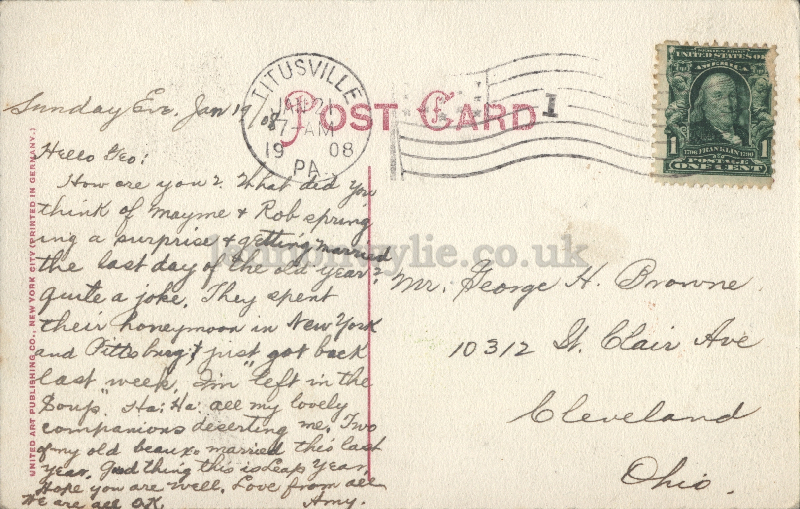 TITUSVILLE
JAN 21
7-AM
19 08
PA.
POST CARD
1
SERIES 1902
UNITED STATES OF
AMERICA
1706 FRANKLIN 1790
1 1
POSTAGE
ONE CENT
Sunday Eve. Jan 19/08
Hello Geo:
How are you? What did you
think of Mayme & Rob spring
ing a surprise & getting married
the last day of the old year?
Quite a joke. They spent
their honeymoon in New York
and Pittsburg & just got back
last week. I'm "left in the
Soup". Ha: Ha: all my lovely
companions deserting me. Two
of my old beaux married this last
year. Good thing this is Leap Year.
Hope you are well. Love from all
We are all O.K. Amy.
Mr. George H. Browne
10312 St. Clair Ave
Cleveland
Ohio.
UNITED ART PUBLISHING CO., NEW YORK CITY (PRINTED IN GERMANY.)